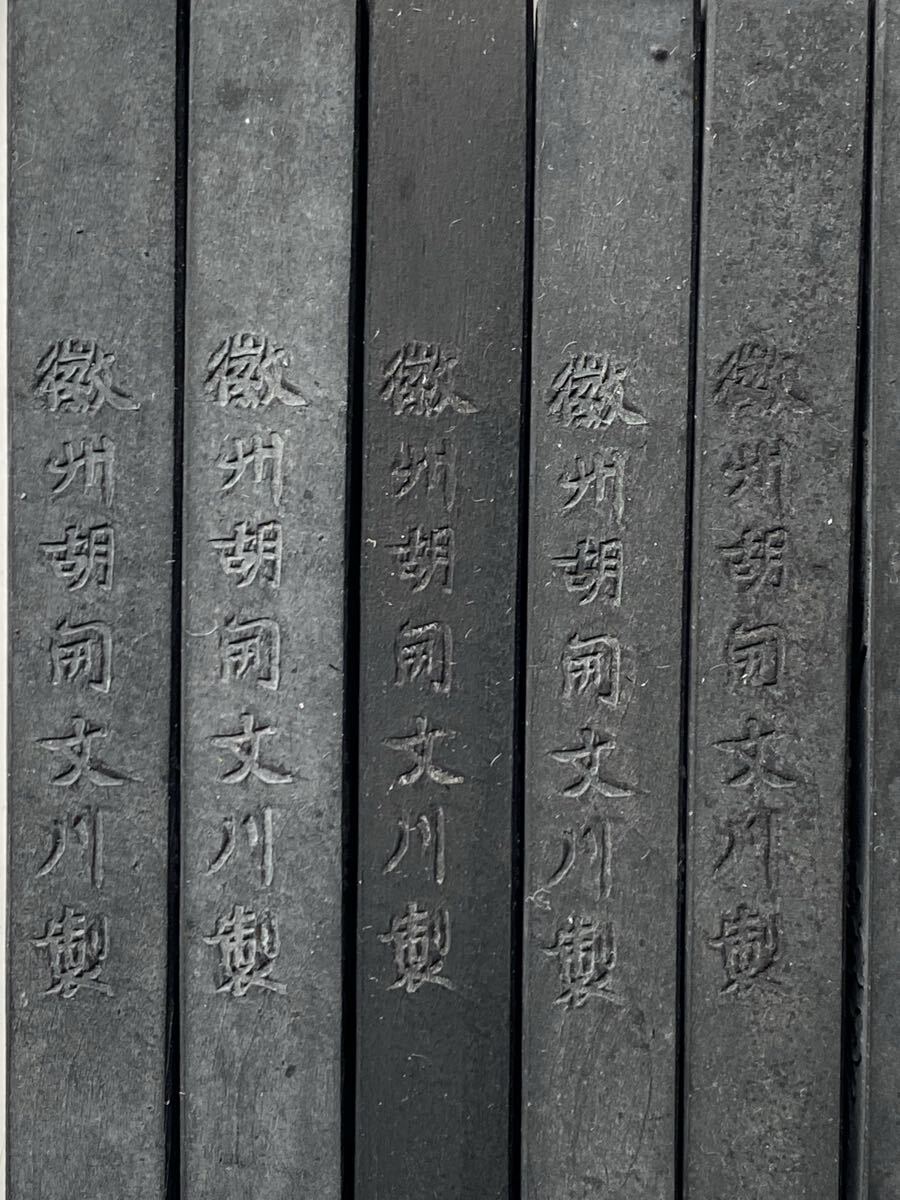 徽州胡開文川製
徽州胡開文川製
徽州胡開文川製
徽州胡開文川製
徽州胡開文川製